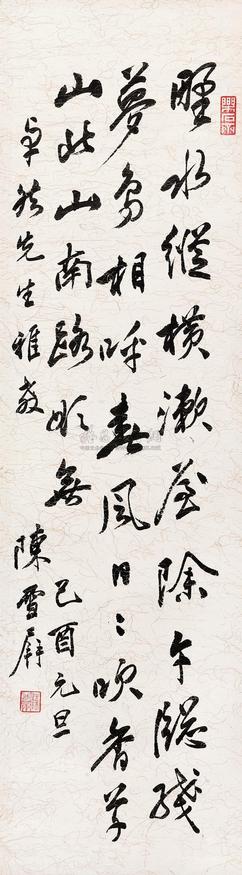 野水縱橫漱屋除午窗殘
夢鳥相呼春風日日吹香草
山北山南路欲無
卓然先生雅教
己酉元旦
陳雪屏